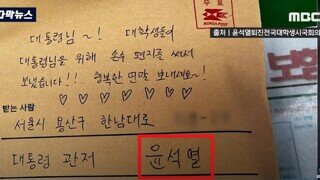 자막뉴스
MBC
출처 | 윤석열퇴진전국대학생시국회의
우표
KOREA POST
대통령님~! 대학생들이
대통령님을 위해 손수 편지를 써서
보냈습니다!! 행복한 연말 보내세요~!
♡ ♡ ♡ ♡ ♡ ♡ ♡ ♡
받는 사람
서울시 용산구 한남대로
대통령 관저 윤석열